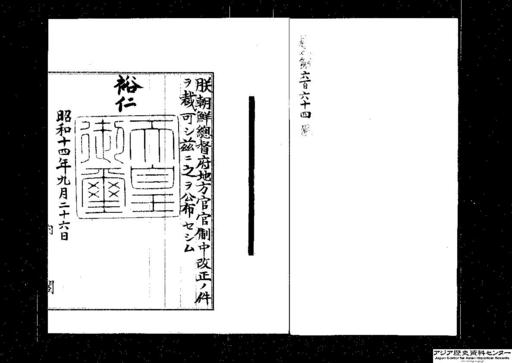 六百六十四
朕朝鮮總督府地方官官制中改正ノ件
ヲ裁可シ茲ニ之ヲ公布セシム
裕仁
天皇
御璽
昭和十四年九月二十六日
内閣
アジア歴史資料センター
Japan Center for Asian Historical Records